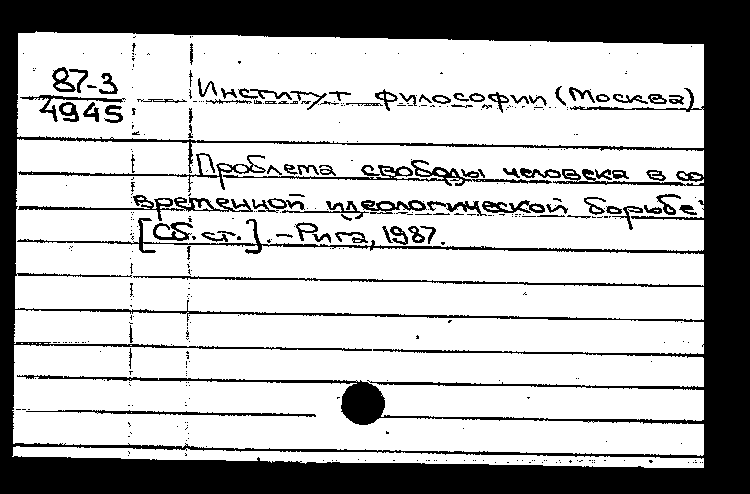 87-3
4945
Институт философии (Москва)
Проблема свободы человека в со
временной идеологической борьбе:
[Сб. ст.]. - Рига, 1987.